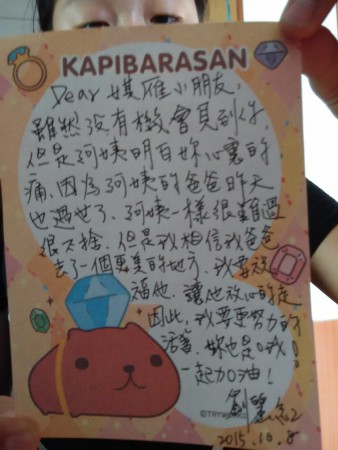 KAPIBARASAN
Dear 媄雁小朋友,
雖然沒有機會見到你,
但是阿姨明白妳心裏的
痛,因為阿姨的爸爸昨天
也過世了、阿姨一樣很難過
很不捨,但是我相信我爸爸
去了一個更美的地方,我要祝
福他,讓他放心的走
因此,我要更努力的
活著,妳也是哦!
一起加油!
2015.10.8